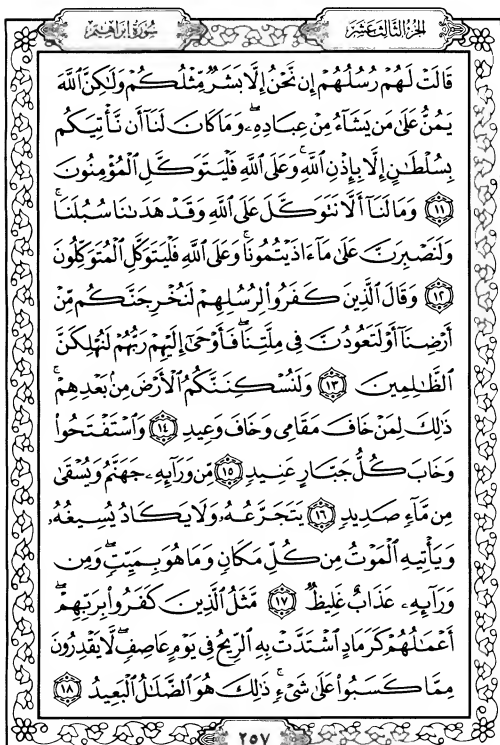 الجزء الثالث عشر
سورة إبراهيم
قَالَتْ لَهُمْ رُسُلُهُمْ إِن نَّحْنُ إِلَّا بَشَرٌ مِّثْلُكُمْ وَلَٰكِنَّ ٱللَّهَ
يَمُنُّ عَلَىٰ مَن يَشَآءُ مِنْ عِبَادِهِۦۖ وَمَا كَانَ لَنَآ أَن نَّأْتِيَكُم
بِسُلْطَٰنٍ إِلَّا بِإِذْنِ ٱللَّهِۚ وَعَلَى ٱللَّهِ فَلْيَتَوَكَّلِ ٱلْمُؤْمِنُونَ
﴿١١﴾ وَمَا لَنَآ أَلَّا نَتَوَكَّلَ عَلَى ٱللَّهِ وَقَدْ هَدَىٰنَا سُبُلَنَاۚ
وَلَنَصْبِرَنَّ عَلَىٰ مَآ ءَاذَيْتُمُونَاۚ وَعَلَى ٱللَّهِ فَلْيَتَوَكَّلِ ٱلْمُتَوَكِّلُونَ
﴿١٢﴾ وَقَالَ ٱلَّذِينَ كَفَرُوا۟ لِرُسُلِهِمْ لَنُخْرِجَنَّكُم مِّنْ
أَرْضِنَآ أَوْ لَتَعُودُنَّ فِى مِلَّتِنَاۖ فَأَوْحَىٰٓ إِلَيْهِمْ رَبُّهُمْ لَنُهْلِكَنَّ
ٱلظَّٰلِمِينَ ﴿١٣﴾ وَلَنُسْكِنَنَّكُمُ ٱلْأَرْضَ مِنۢ بَعْدِهِمْۚ
ذَٰلِكَ لِمَنْ خَافَ مَقَامِى وَخَافَ وَعِيدِ ﴿١٤﴾ وَٱسْتَفْتَحُوا۟
وَخَابَ كُلُّ جَبَّارٍ عَنِيدٍ ﴿١٥﴾ مِّن وَرَآئِهِۦ جَهَنَّمُ وَيُسْقَىٰ
مِن مَّآءٍ صَدِيدٍ ﴿١٦﴾ يَتَجَرَّعُهُۥ وَلَا يَكَادُ يُسِيغُهُۥ
وَيَأْتِيهِ ٱلْمَوْتُ مِن كُلِّ مَكَانٍ وَمَا هُوَ بِمَيِّتٍۖ وَمِن
وَرَآئِهِۦ عَذَابٌ غَلِيظٌ ﴿١٧﴾ مَّثَلُ ٱلَّذِينَ كَفَرُوا۟ بِرَبِّهِمْۖ
أَعْمَٰلُهُمْ كَرَمَادٍ ٱشْتَدَّتْ بِهِ ٱلرِّيحُ فِى يَوْمٍ عَاصِفٍۖ لَّا يَقْدِرُونَ
مِمَّا كَسَبُوا۟ عَلَىٰ شَىْءٍۚ ذَٰلِكَ هُوَ ٱلضَّلَٰلُ ٱلْبَعِيدُ ﴿١٨﴾
٢٥٧